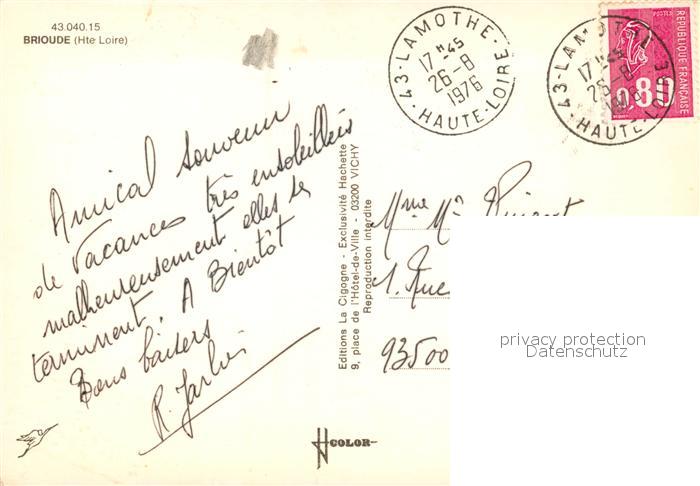 43.040.15
BRIOUDE (Hte Loire)
Amical souvenir
de vacances très ensoleillées
malheureusement elles se
terminent. A Bientôt
Bons baisers
R.
Editions La Cigogne - Exclusivité Hachette
9, place de l'Hôtel-de-Ville - 03200 VICHY
Reproduction interdite
COLOR
43-LAMOTHE-
17 H 45
26-8
1976
HAUTE-LOIRE
43-LAMOTHE
17 H 45
26-8
1976
HAUTE-LOIRE
POSTES
REPUBLIQUE FRANÇAISE
0,80
Mme Mr
1. Rue
93500
privacy protection
Datenschutz